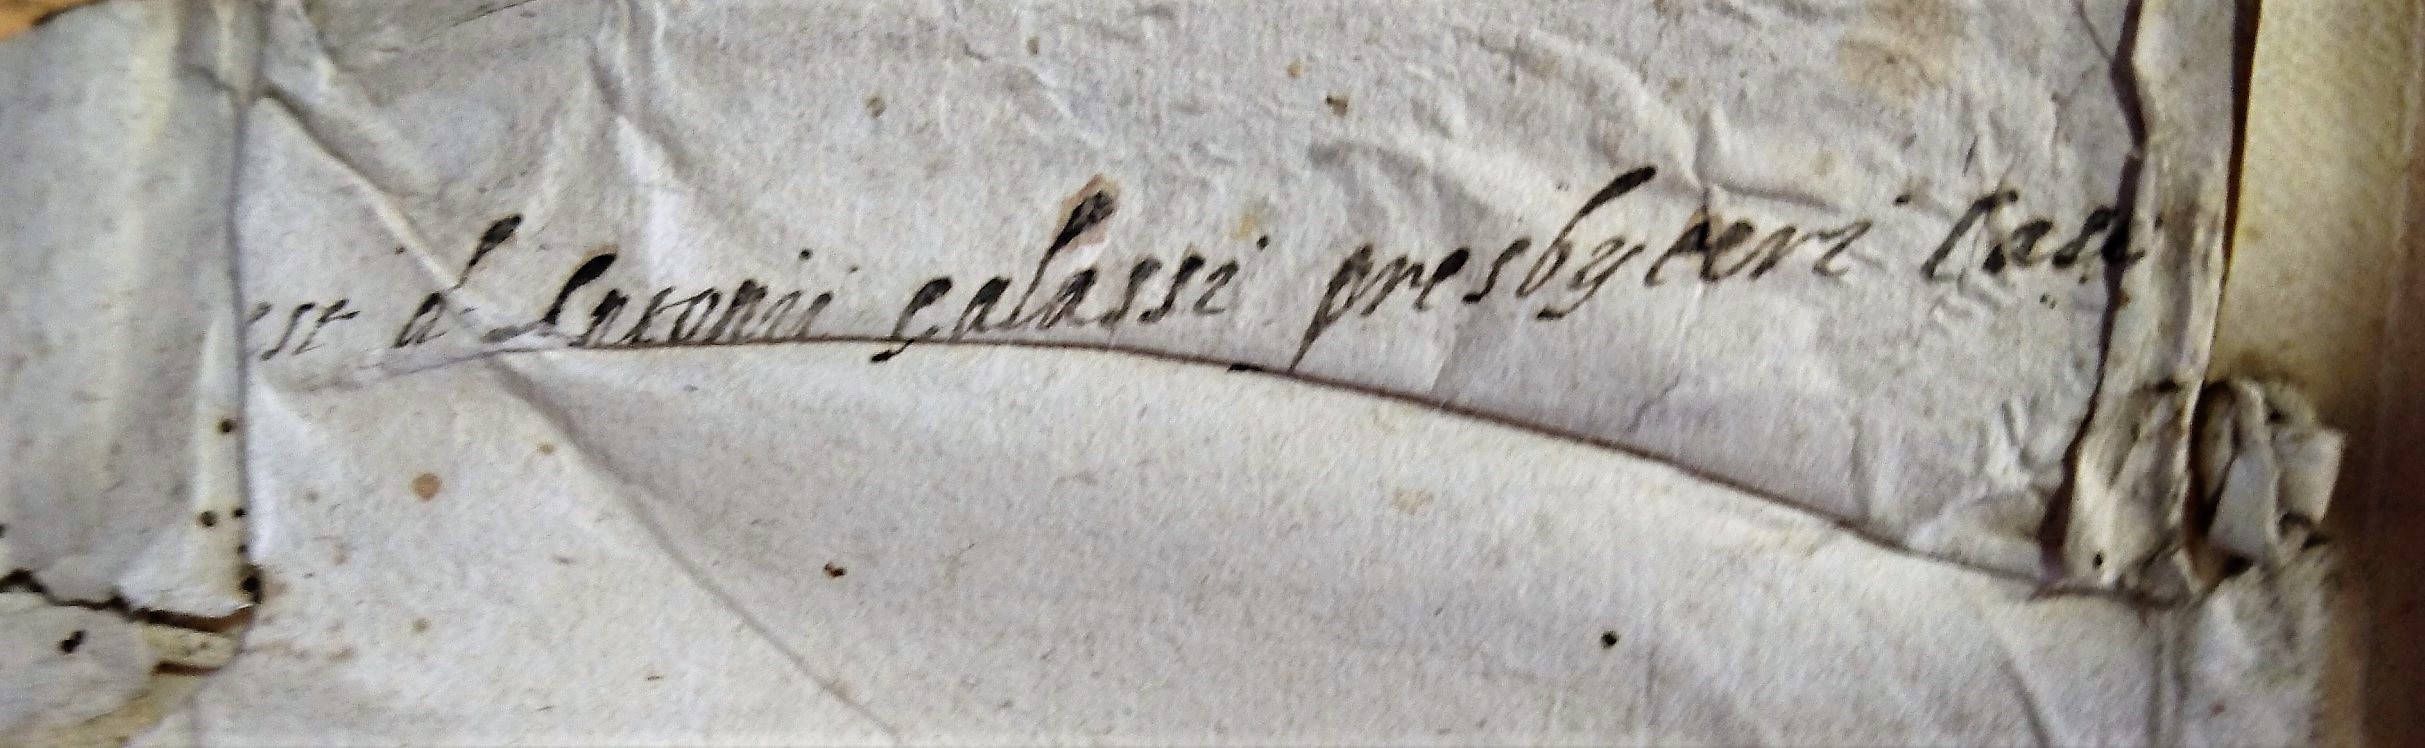 est d Antonii galassi presbyteri